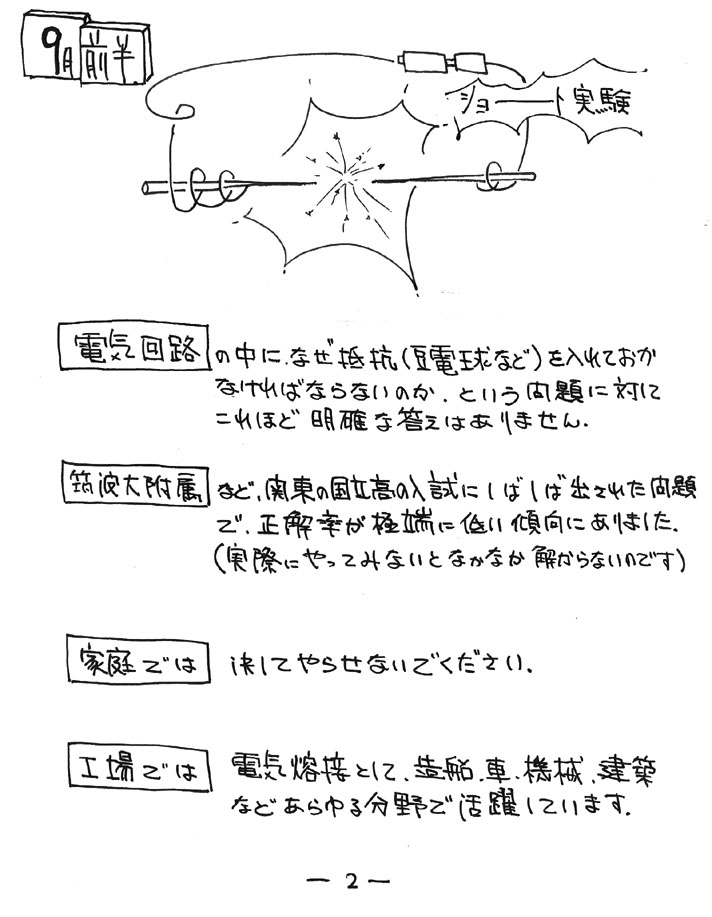 9月前半
ショート実験
電気回路 の中に、なぜ抵抗(豆電球など)を入れておか
なければならないのか、という問題に対して
これほど明確な答えはありません.
筑波大附属 など、関東の国立高の入試にしばしば出された問題
で、正解率が極端に低い傾向にありました.
(実際にやってみないとなかなか解からないのです)
家庭では 決してやらせないでください.
工場では 電気熔接として、造船、車、機械、建築
などあらゆる分野で活躍しています.
— 2 —